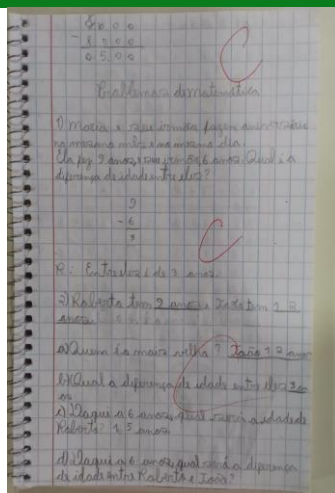 - 8,00
0 5,00
C
Problemas de matemática
1) Maria e seu irmão fazem aniversário
no mesmo mês e no mesmo dia.
Ela fez 9 anos, e seu irmão, 6 anos. Qual é a
diferença de idade entre eles?
9
- 6
3
C
R: Entre eles é de 3 anos
2) Roberto tem 9 anos e João tem 12
anos.
a) Quem é o mais velho? João 12 anos
b) Qual a diferença de idade entre eles 3 an
os
c) Daqui a 6 anos, qual será a idade de
Roberto? 15 anos
d) Daqui a 6 anos, qual será a diferença
de idade entre Roberto e João?